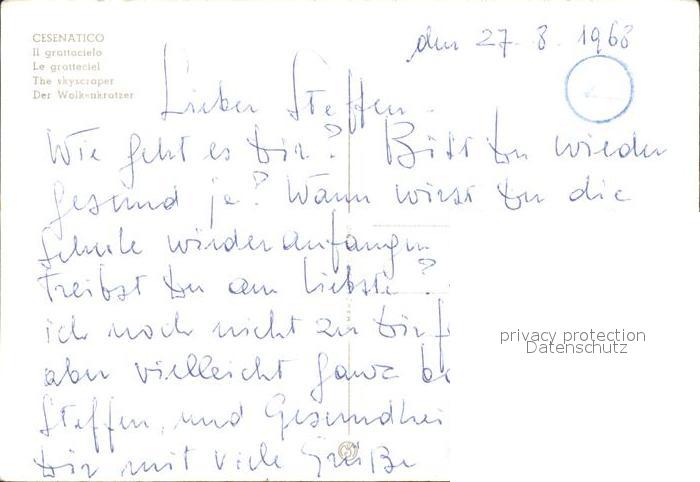 CESENATICO
Il grattacielo
Le gratteciel
The skyscraper
Der Wolkenkratzer
den 27. 8. 1968
Lieber Steffen
Wie geht es Dir? Bist Du wieder
gesund ja? Wann wirst Du die
Schule wieder anfangen
Treibst Du am liebsten?
ich noch nicht zu Dir
aber vielleicht ganz
Steffen, und Gesundhei
Dir mit viele Grüße
privacy protection
Datenschutz